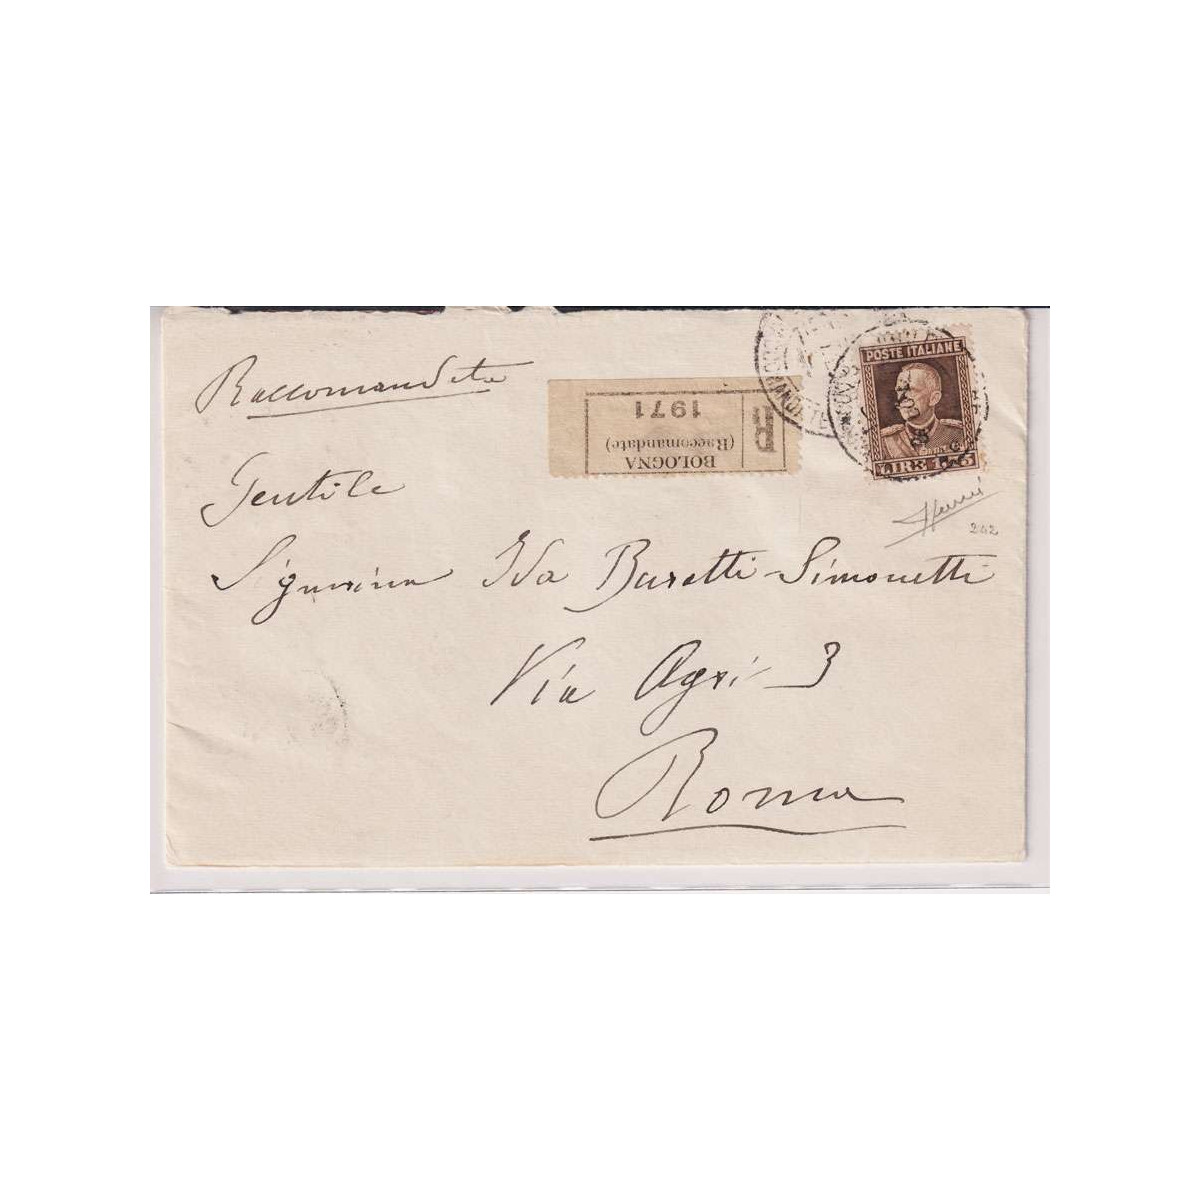 Raccomandata
POSTE ITALIANE
LIRE 1,75
R
BOLOGNA
(Raccomandate)
1971
242
Gentile
Signorina Ida Buretti-Simonetti
Via Agri 3
Roma